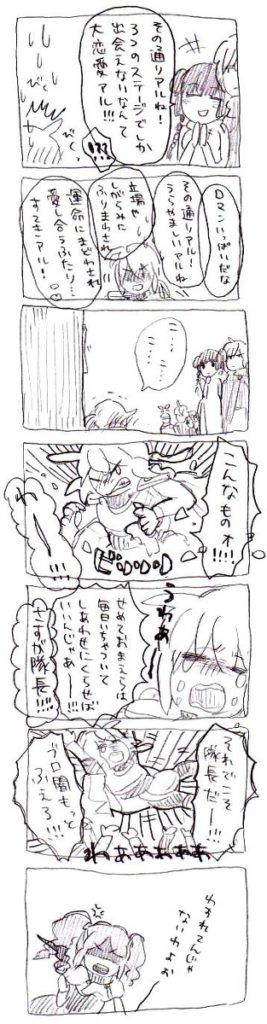 その通りアルね!
3つのステージでしか
出会えないなんて
大恋愛
アル!!!
!??
びくっ
びくっ
ロマンいっぱいだな
その通りアル!
うらやましいアルね
立場や
しがらみに
ふりまわされ
運命にまどわされ
愛し合うふたり…
すてきアル!
こんなものォ!!!!
わーーー!!!
うわあ
せめておまえらは
毎日いちゃついて
しあわせにくらせば
いいじゃあー!!!
さすが隊長!!!
それでこそ
隊長だー!!!
ふえろ!!!
わああああああ
わるれてんじゃ
ないわよお